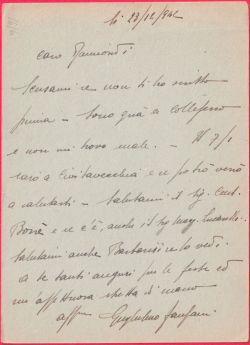 li 23/12/942
Caro Raimondi
Scusami se non ti ho scritto
prima - Sono quà a Colleferro
e non mi trovo male. - Il 7/1
sarò a Civitavecchia e se potrò verrò
a salutarti - Salutami il Sig.
Borrà e se c'è, anche il Sig Magg.
Salutami anche se lo vedi.
A te tanti auguri per le feste ed
un'affettuosa stretta di mano
affmo Guglielmo Fanfani